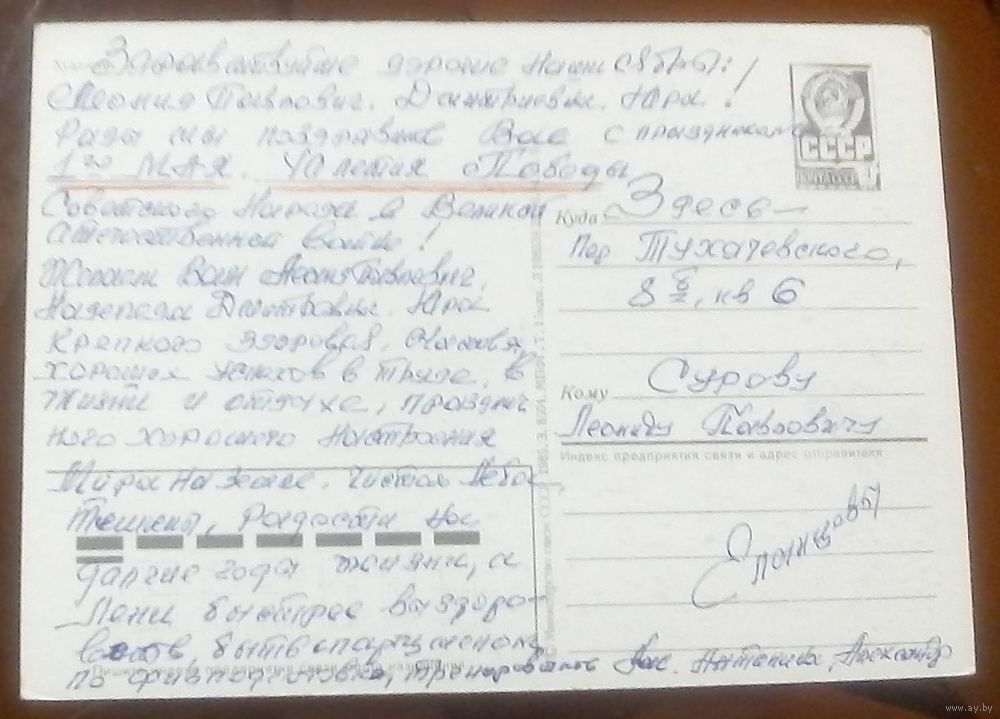 Здравствуйте дорогие Наши
Леонид Павлович, Дмитриевна, Юра!
Рады мы поздравить Вас с праздниками
1го МАЯ. 40 летия Победы
Советского Народа в Великой
отечественной войне!
Желаем Вам Леонид Павлович,
Дмитриевна, Юра
крепкого здоровья, счастья,
хороших успехов в труде, в
жизни и отдыхе, праздни
ного хорошего настроения
Мира на земле, чистого Неба
радости на
долгие года жизни, а
Лени быстрее выздоро-
веть быть
по физподготовке, Александр
СССР
Куда Здесь-
пер. Тухачевского,
8 б/2, кв 6
Кому Сурову
Леониду Павловичу
Индекс предприятия связи и адрес отправителя
www.ay.by